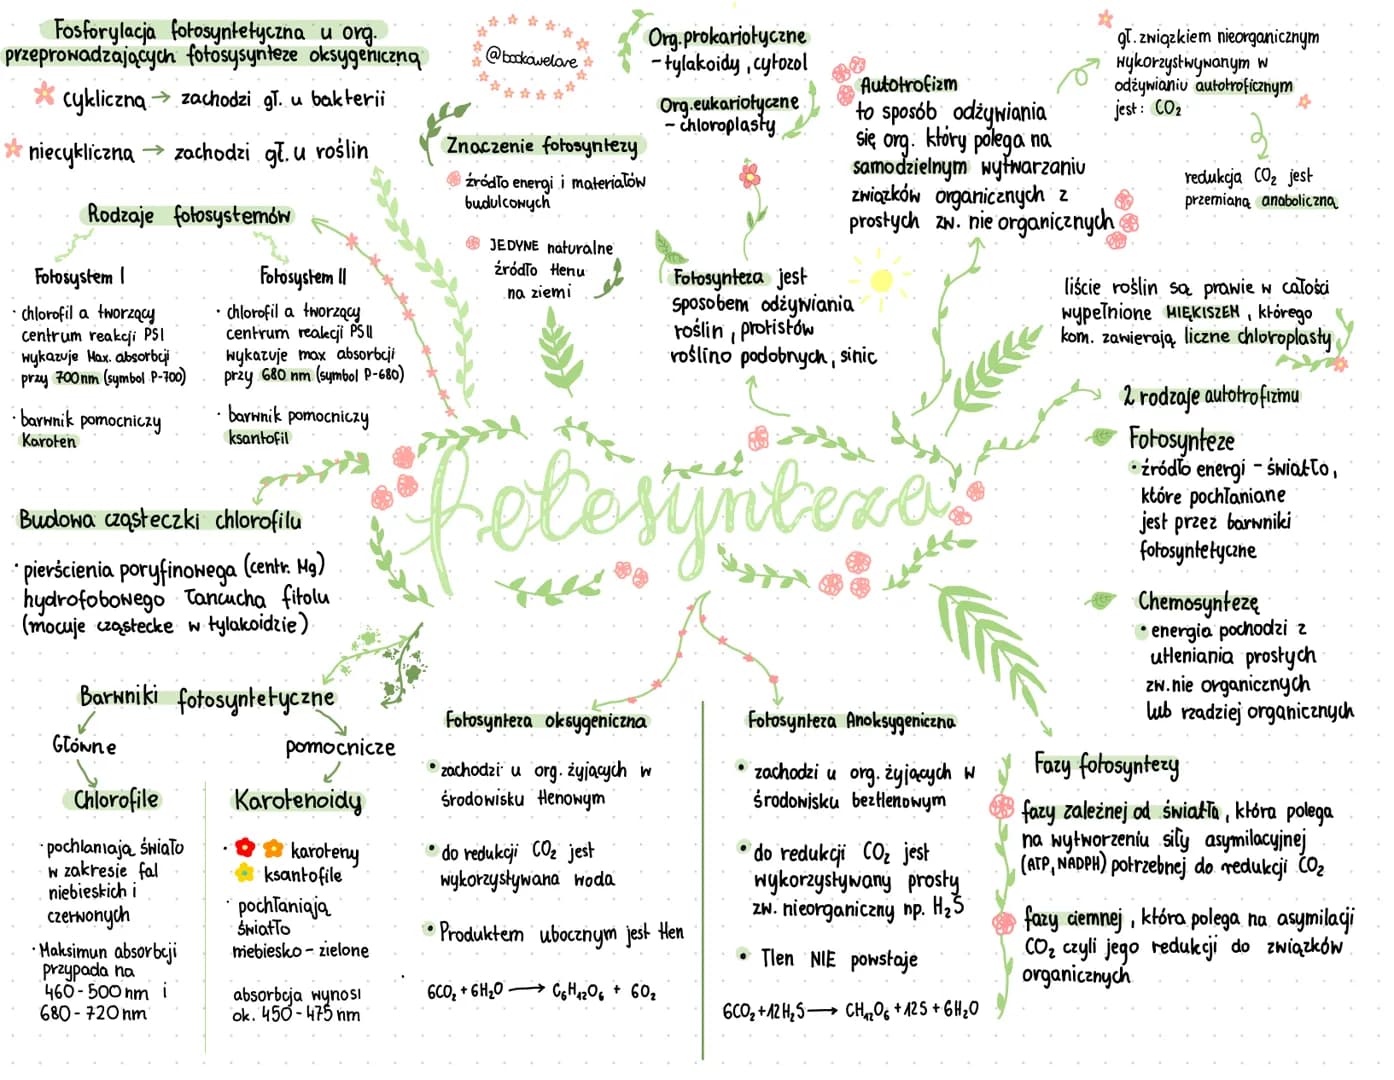 Fosforylacja fotosyntetyczna u org.
przeprowadzających fotosysynteze oksygeniczną
cykliczną → zachodzi gł. u bakterii
niecykliczna → zachodzi gł. u roślin
@bookowelove
Org. prokariotyczne
- tylakoidy, cytozol
Org. eukariotyczne
- chloroplasty
Autotrofizm
to sposób odżywiania
się org. który polega na
samodzielnym wytwarzaniu
związków organicznych z
prostych zw. nie organicznych
gł. związkiem nieorganicznym
wykorzystwywanym w
odżywianiu autotroficznym
jest: CO₂
redukcja CO₂ jest
przemianą anaboliczną
Znaczenie fotosyntezy
źródło energi i materiałów
budulcowych
JEDYNE naturalne
źródło tlenu
na ziemi
Rodzaje fotosystemów
Fotosystem I
· chlorofil a tworzący
centrum reakcji PSI
wykazuje Max. absorbcji
przy 700nm (symbol P-700)
· barwnik pomocniczy
Karoten
Fotosystem II
· chlorofil a tworzący
centrum reakcji PSII
wykazuje max absorbcji
przy 680 nm (symbol P-680)
· barwnik pomocniczy
ksantofil
Fotosynteza jest
sposobem odżywiania
roślin, protistów
roślino podobnych, sinic
liście roślin są prawie w całości
wypełnione MIĘKISZEM, którego
kom. zawierają liczne chloroplasty
2 rodzaje autotrofizmu
Fotosynteze
• źródło energi - światło,
które pochłaniane
jest przez barwniki
fotosyntetyczne
Chemosyntezę
• energia pochodzi z
utleniania prostych
zw. nie organicznych
lub rzadziej organicznych
fotosynteza
Budowa cząsteczki chlorofilu
· pierścienia poryfinowega (centr. Mg)
hydrofobowego łańcucha fitolu
(mocuje cząstecke w tylakoidzie)
Barwniki fotosyntetyczne
Główne
pomocnicze
Chlorofile
· pochłaniają światło
w zakresie fal
niebieskich i
czerwonych
· Maksimun absorbcji
przypada na
460-500nm i
680-720nm
Karotenoidy
· karoteny
ksantofile
· pochłaniają
światło
niebiesko-zielone
absorbcja wynosi
ok. 450-475nm
Fotosynteza oksygeniczna
• zachodzi u org. żyjących w
środowisku tlenowym
• do redukcji CO₂ jest
wykorzystywana woda
• Produktem ubocznym jest tlen
6CO₂ + 6H₂O → C₆H₁₂O₆ + 6O₂
Fotosynteza Anoksygeniczna
• zachodzi u org. żyjących w
środowisku beztlenowym
• do redukcji CO₂ jest
wykorzystywany prosty
zw. nieorganiczny np. H₂S
• Tlen NIE powstaje
6CO₂+12H₂S → CH₁₂O₆+12S+6H₂O
Fazy fotosyntezy
fazy zależnej od światła, która polega
na wytworzeniu siły asymilacyjnej
(ATP, NADPH) potrzebnej do redukcji CO₂
fazy ciemnej, która polega na asymilacji
CO₂ czyli jego redukcji do związków
organicznych